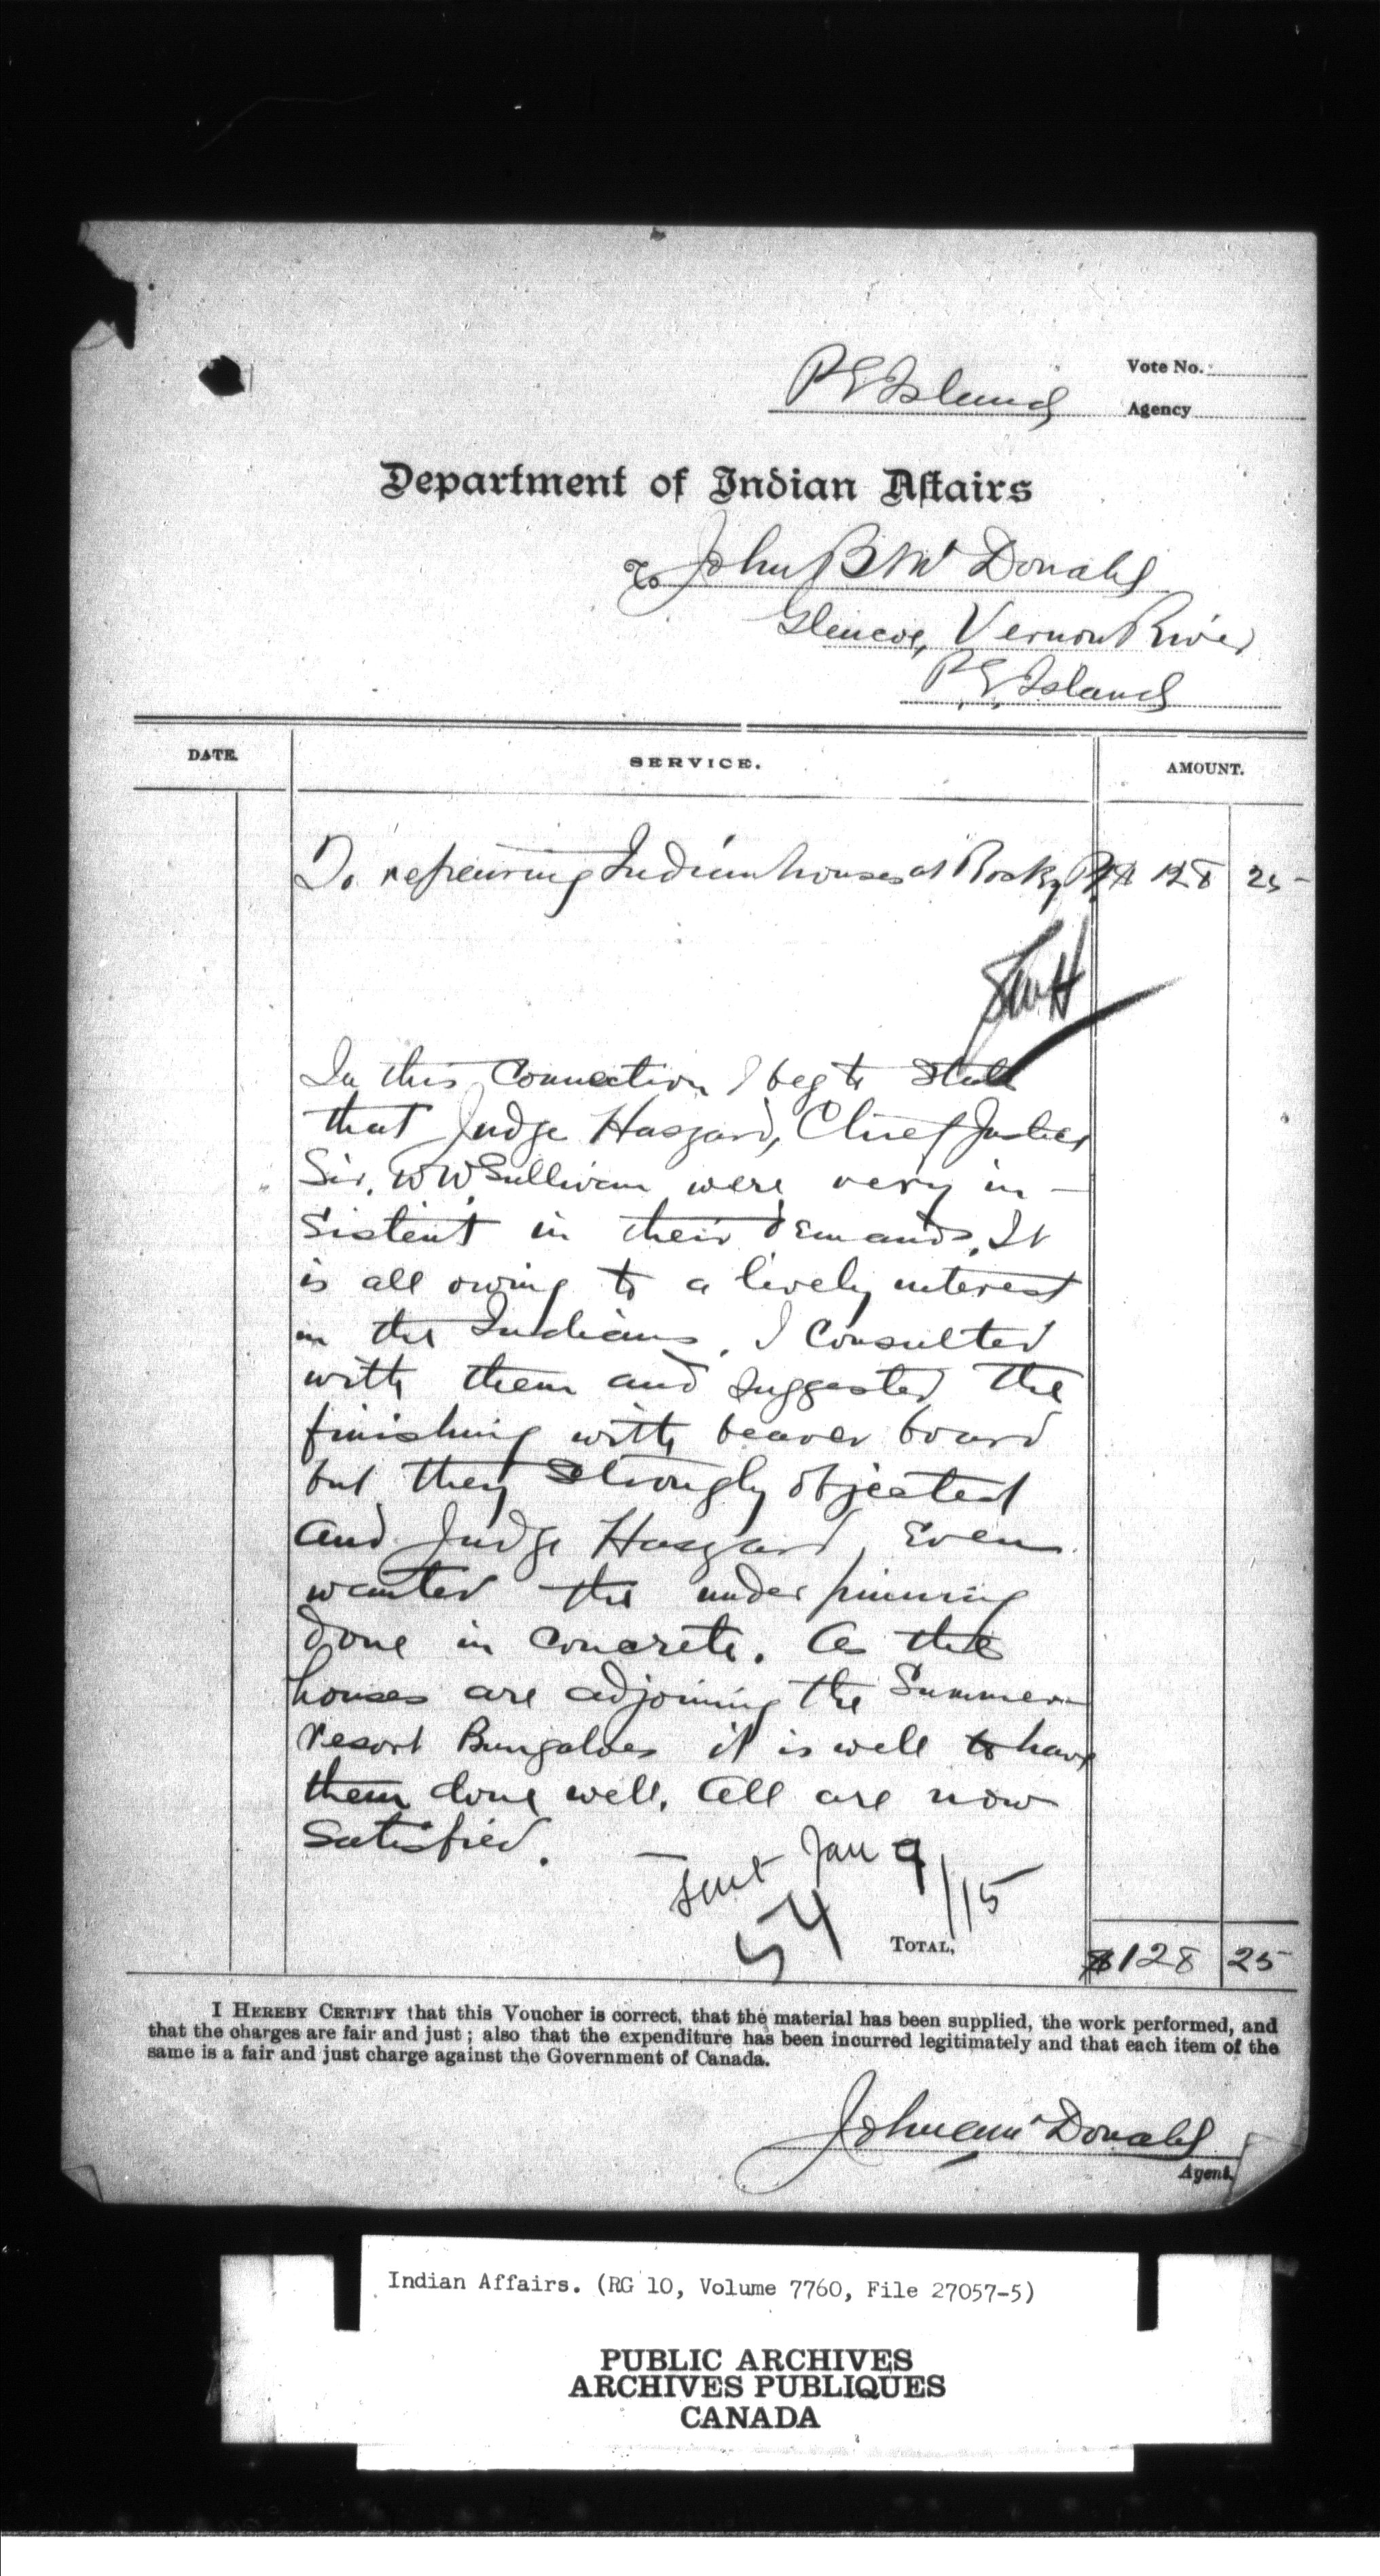 P E Island
Vote No.
Agency
Department of Indian Affairs
To John B Mc Donald
Glencoe, Vernon River
P. E. Island
DATE.
SERVICE.
AMOUNT.
To repairing Indian houses at Rocky Pt. $ 128 25
In this Connection I beg to State
that Judge Haszard, Chief Justice
Sir. W W Sullivan were very in-
sistent in their demands. It
is all owing to a lively interest
in the Indians. I Consulted
with them and suggested the
finishing with beaver board
but they strongly objected
and Judge Haszard, Even
wanted the under pinning
done in concrete. As the
houses are adjoining the Summer
resort Bungaloes it is well to have
them done well. All are now
satisfied.
Sent Jan 9/15
54
TOTAL,
$128 25
I HEREBY CERTIFY that this Voucher is correct, that the material has been supplied, the work performed, and
that the charges are fair and just; also that the expenditure has been incurred legitimately and that each item of the
same is a fair and just charge against the Government of Canada.
John McDonald
Agent.
Indian Affairs. (RG 10, Volume 7760, File 27057-5)
PUBLIC ARCHIVES
ARCHIVES PUBLIQUES
CANADA